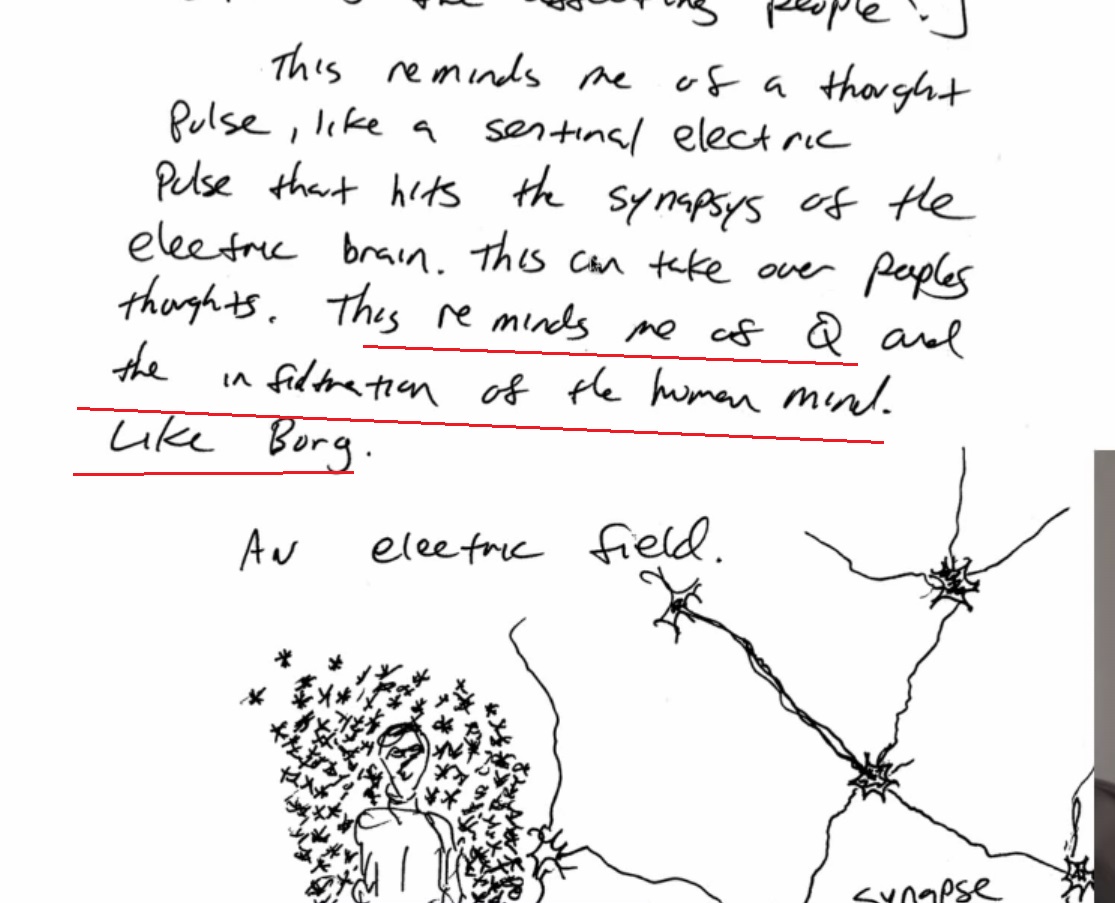 the affecting people.]
This reminds me of a thought
Pulse, like a sentinal electric
Pulse that hits the synapsys of the
electric brain. This can take over peoples
thoughts. This reminds me of Q and
the infiltration of the human mind.
Like Borg.
An electric field.
synapse